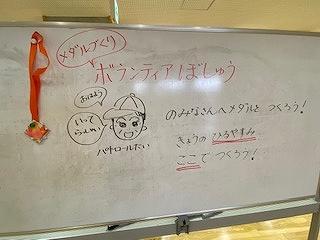 メダルづくり
ボランティアぼしゅう
おはよう
いって
らっしゃい
パトロールたい
のみなさんへメダルを つくろう！
きょうの ひるやすみ
ここで つくろう！